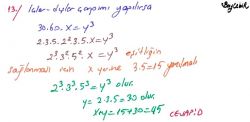 13./ İçler-dışlar çarpımı yapılırsa
30.60.x = y³
2.3.5.2².3.5.x = y³
2³.3².5².x = y³ eşitliğin
sağlanması için x yerine 3.5=15 yazılmalı
2³.3³.5³ = y³ olur.
y = 2.3.5 = 30 olur.
x+y = 15+30 = 45
CEVAP: D